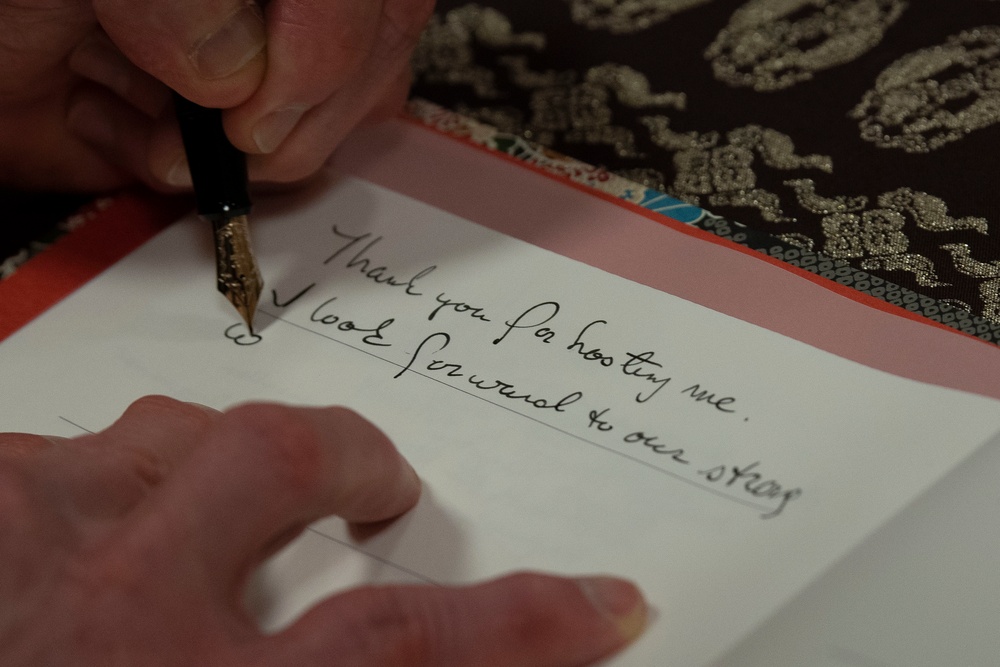 Thank you for hosting me.
I look forward to our strong
co